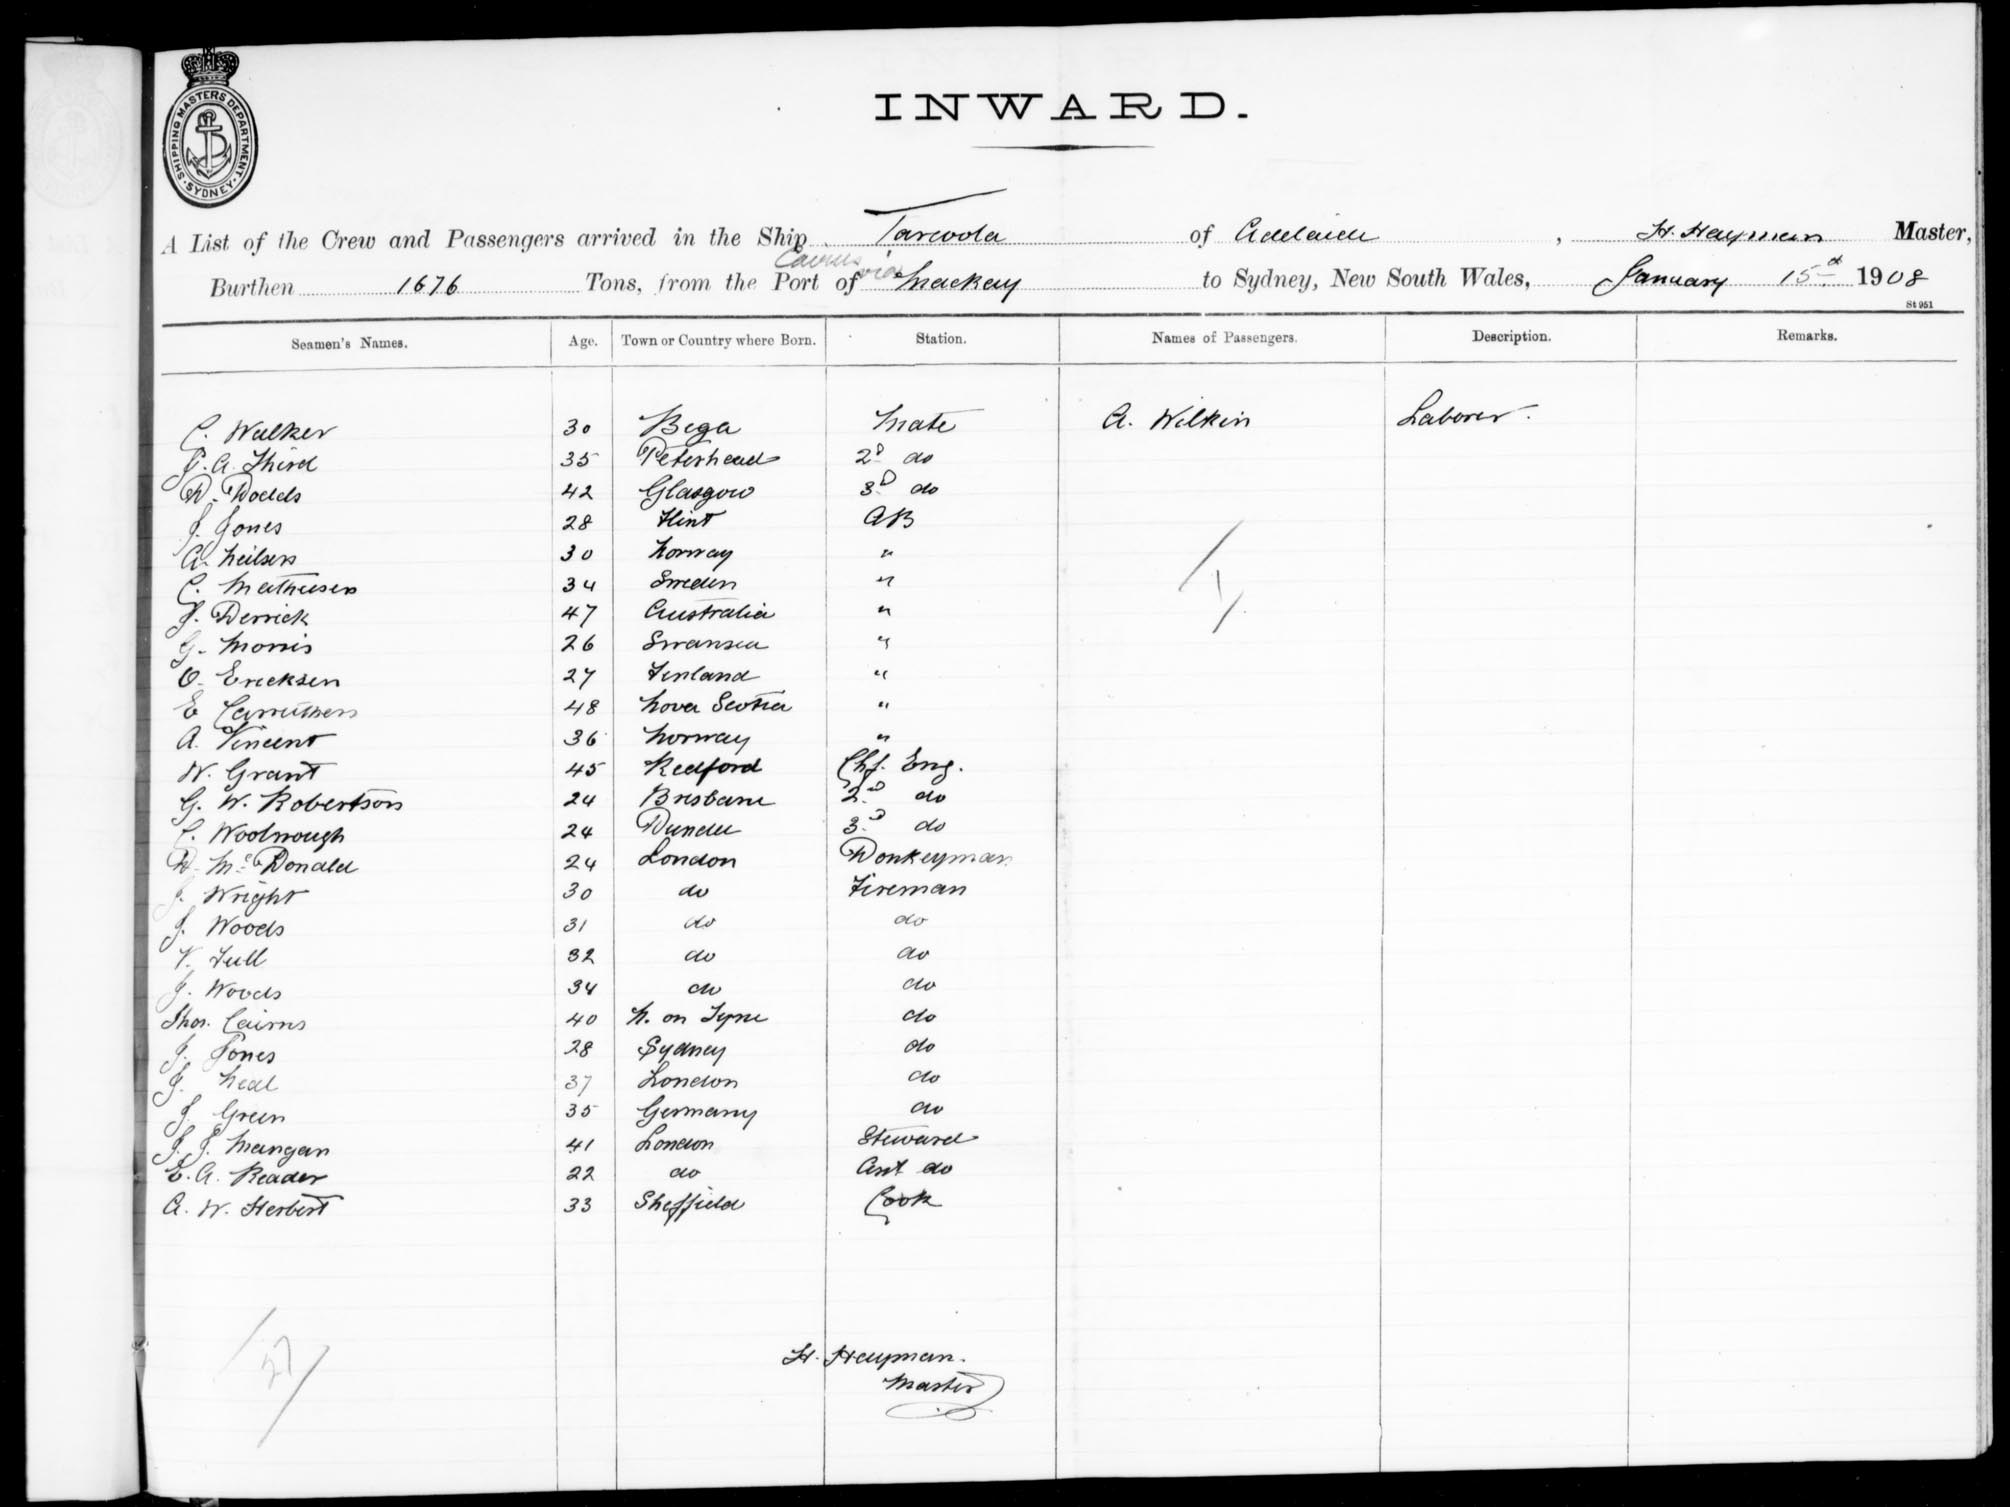 SHIPPING MASTERS DEPARTMENT · SYDNEY ·
INWARD.
A List of the Crew and Passengers arrived in the Ship Tarcoola of Adelaide, H. Hayman Master,
Burthen 1676 Tons, from the Port of Cairns via Mackay to Sydney, New South Wales, January 15th 1908
St 951
Seamen's Names. Age. Town or Country where Born. Station. Names of Passengers. Description. Remarks.
C. Walker 30 Bega Mate A. Wilkin Laborer.
J. A. Third 35 Peterhead 2D do
D. Dodds 42 Glasgow 3D do
J. Jones 28 Flint AB
A. Neilsen 30 Norway "
C. Mathiesen 34 Sweden "
J. Derrick 47 Australia "
G. Morris 26 Swansea "
O. Ericksen 27 Finland "
E Carruthers 48 Nova Scotia "
A. Vincent 36 Norway "
W. Grant 45 Redford Chf. Eng.
G. W. Robertson 24 Brisbane 2D do
C. Woolnough 24 Dundee 3D do
D. McDonald 24 London Donkeyman
J. Wright 30 do Fireman
J. Woods 31 do do
V. Tull 32 do do
J. Woods 34 do do
Thos. Cairns 40 N. on Tyne do
J. Jones 28 Sydney do
J. Neal 37 London do
J. Green 35 Germany do
J. J. Mangan 41 London Steward
E. A. Reader 22 do Asst do
A. W. Herbert 33 Sheffield Cook
1
27
H. Hayman.
Master